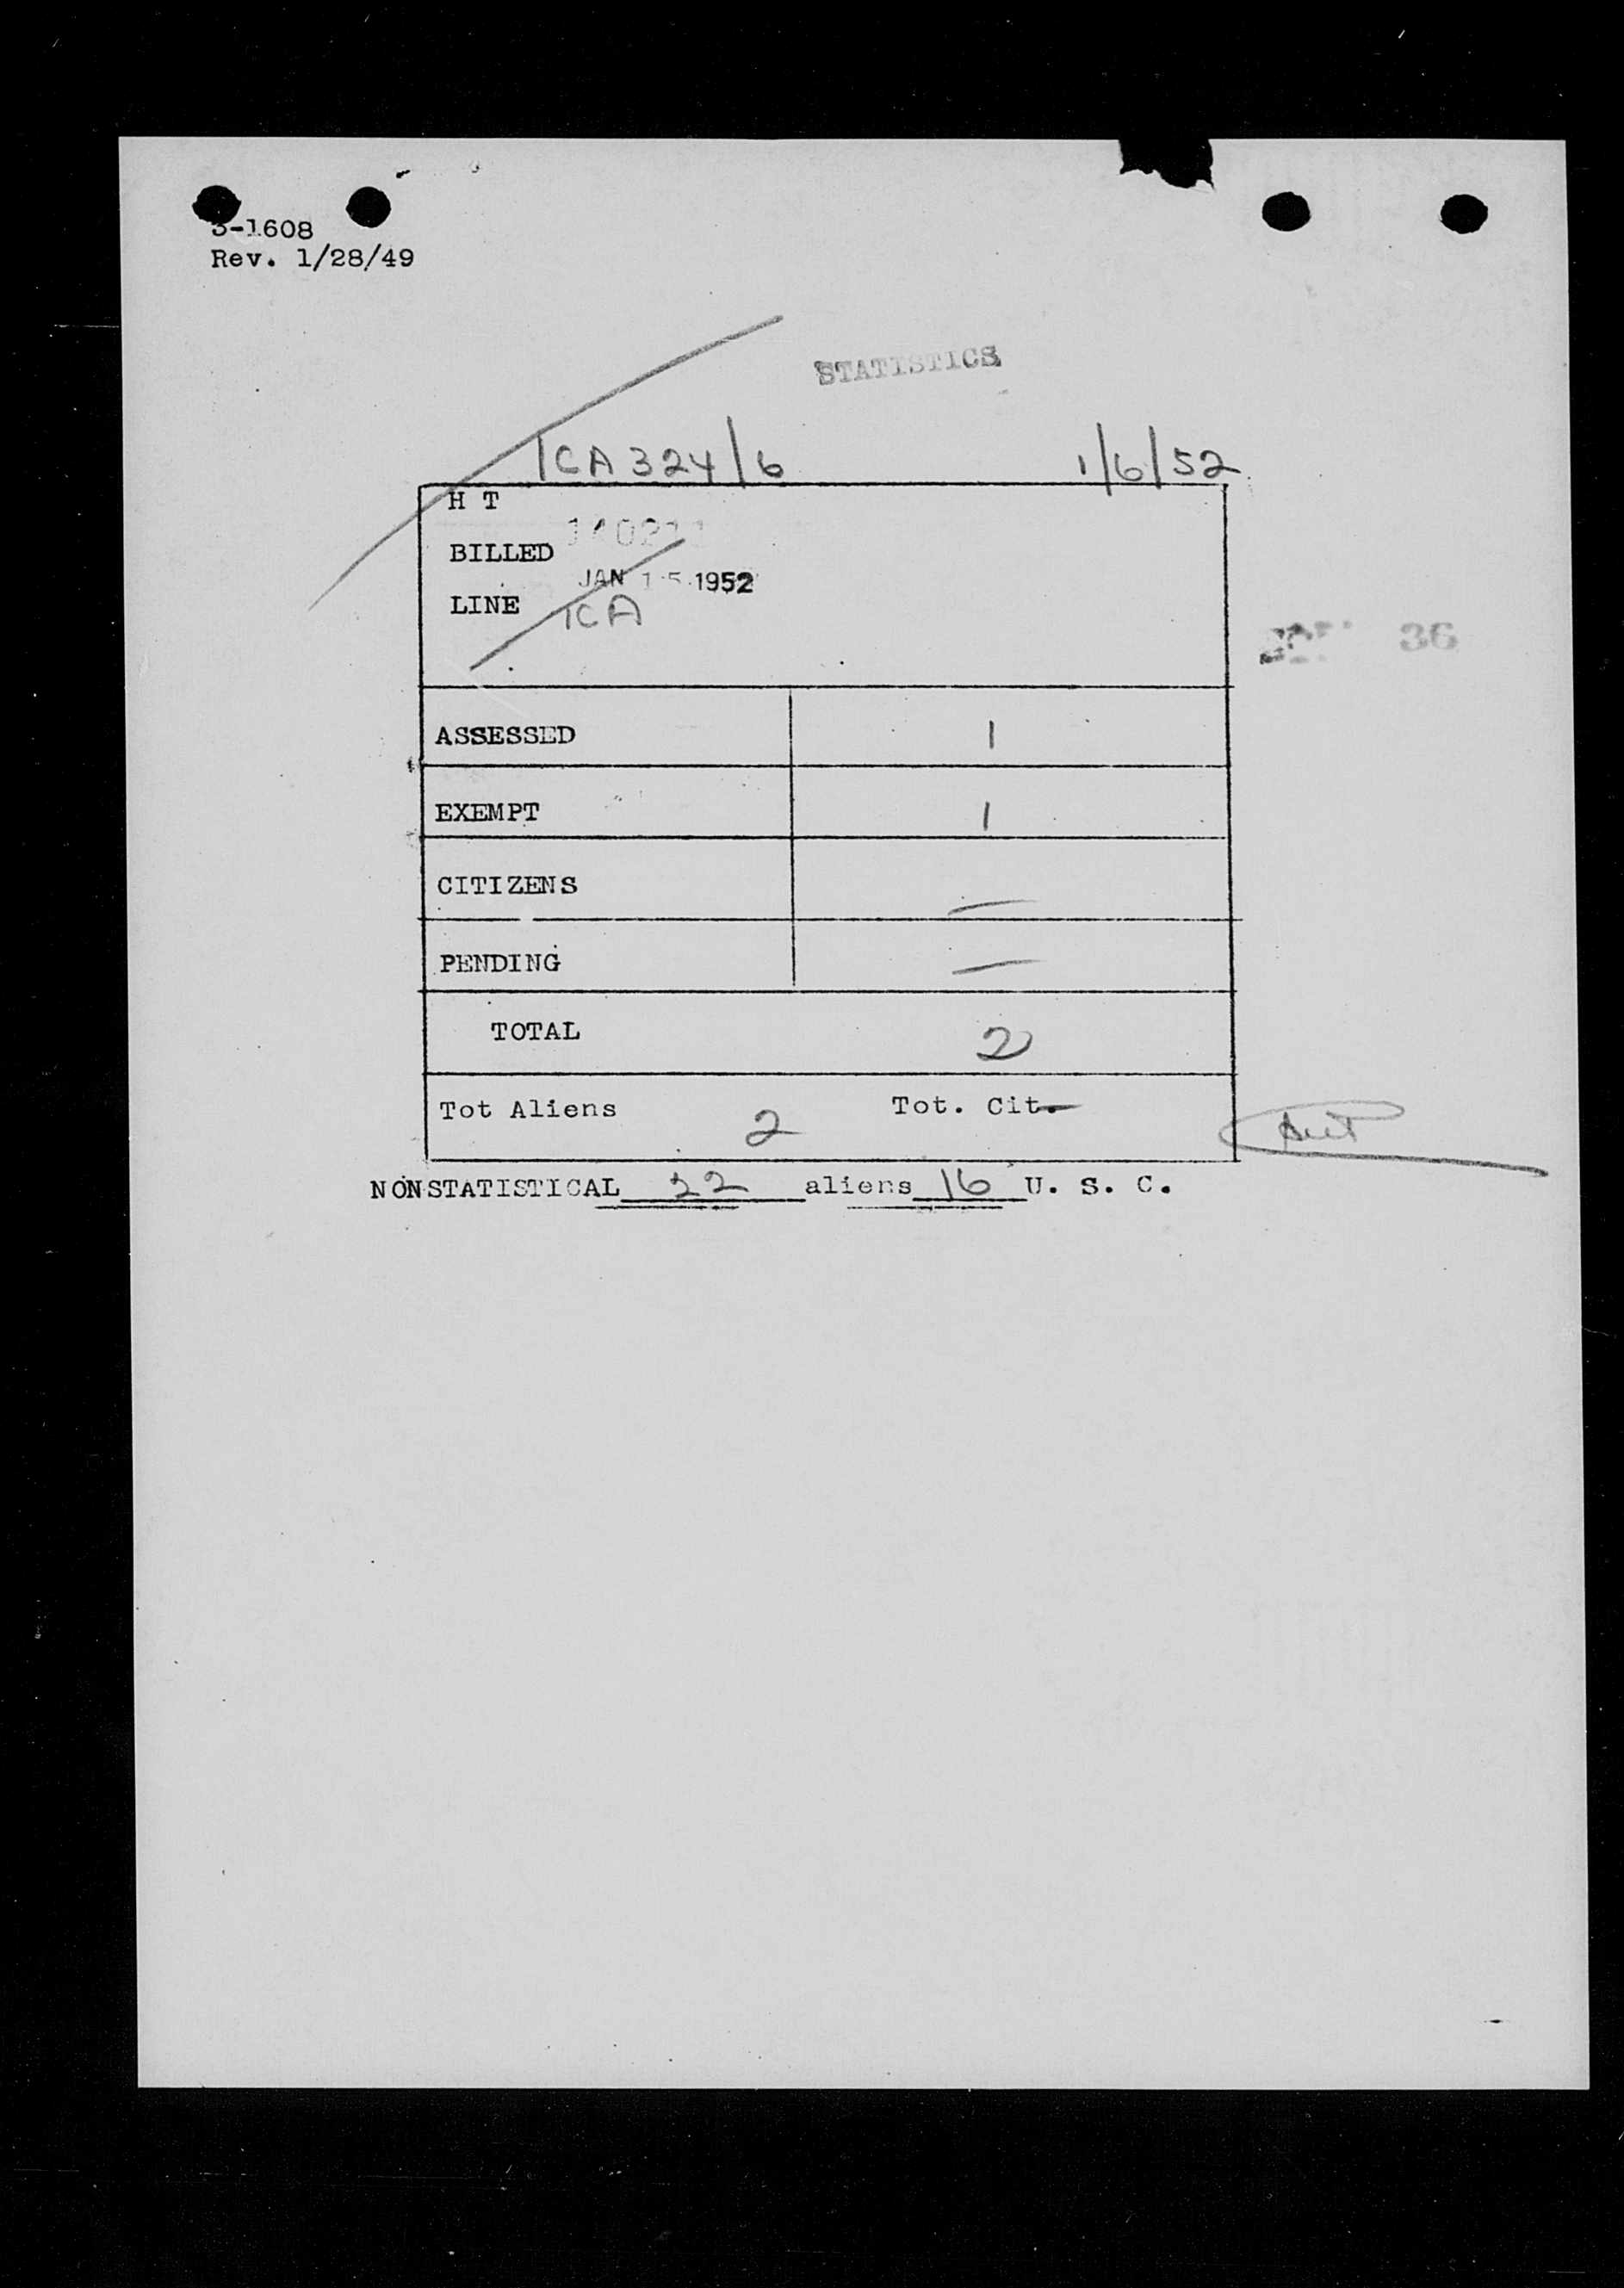 3-1608
Rev. 1/28/49
STATISTICS
ICA 324/6 1/6/52
H T
BILLED
JAN 15 1952
LINE ICA
36
ASSESSED 1
EXEMPT 1
CITIZENS —
PENDING —
TOTAL 2
Tot Aliens 2 Tot. Cit. —
NONSTATISTICAL 22 aliens 16 U. S. C.